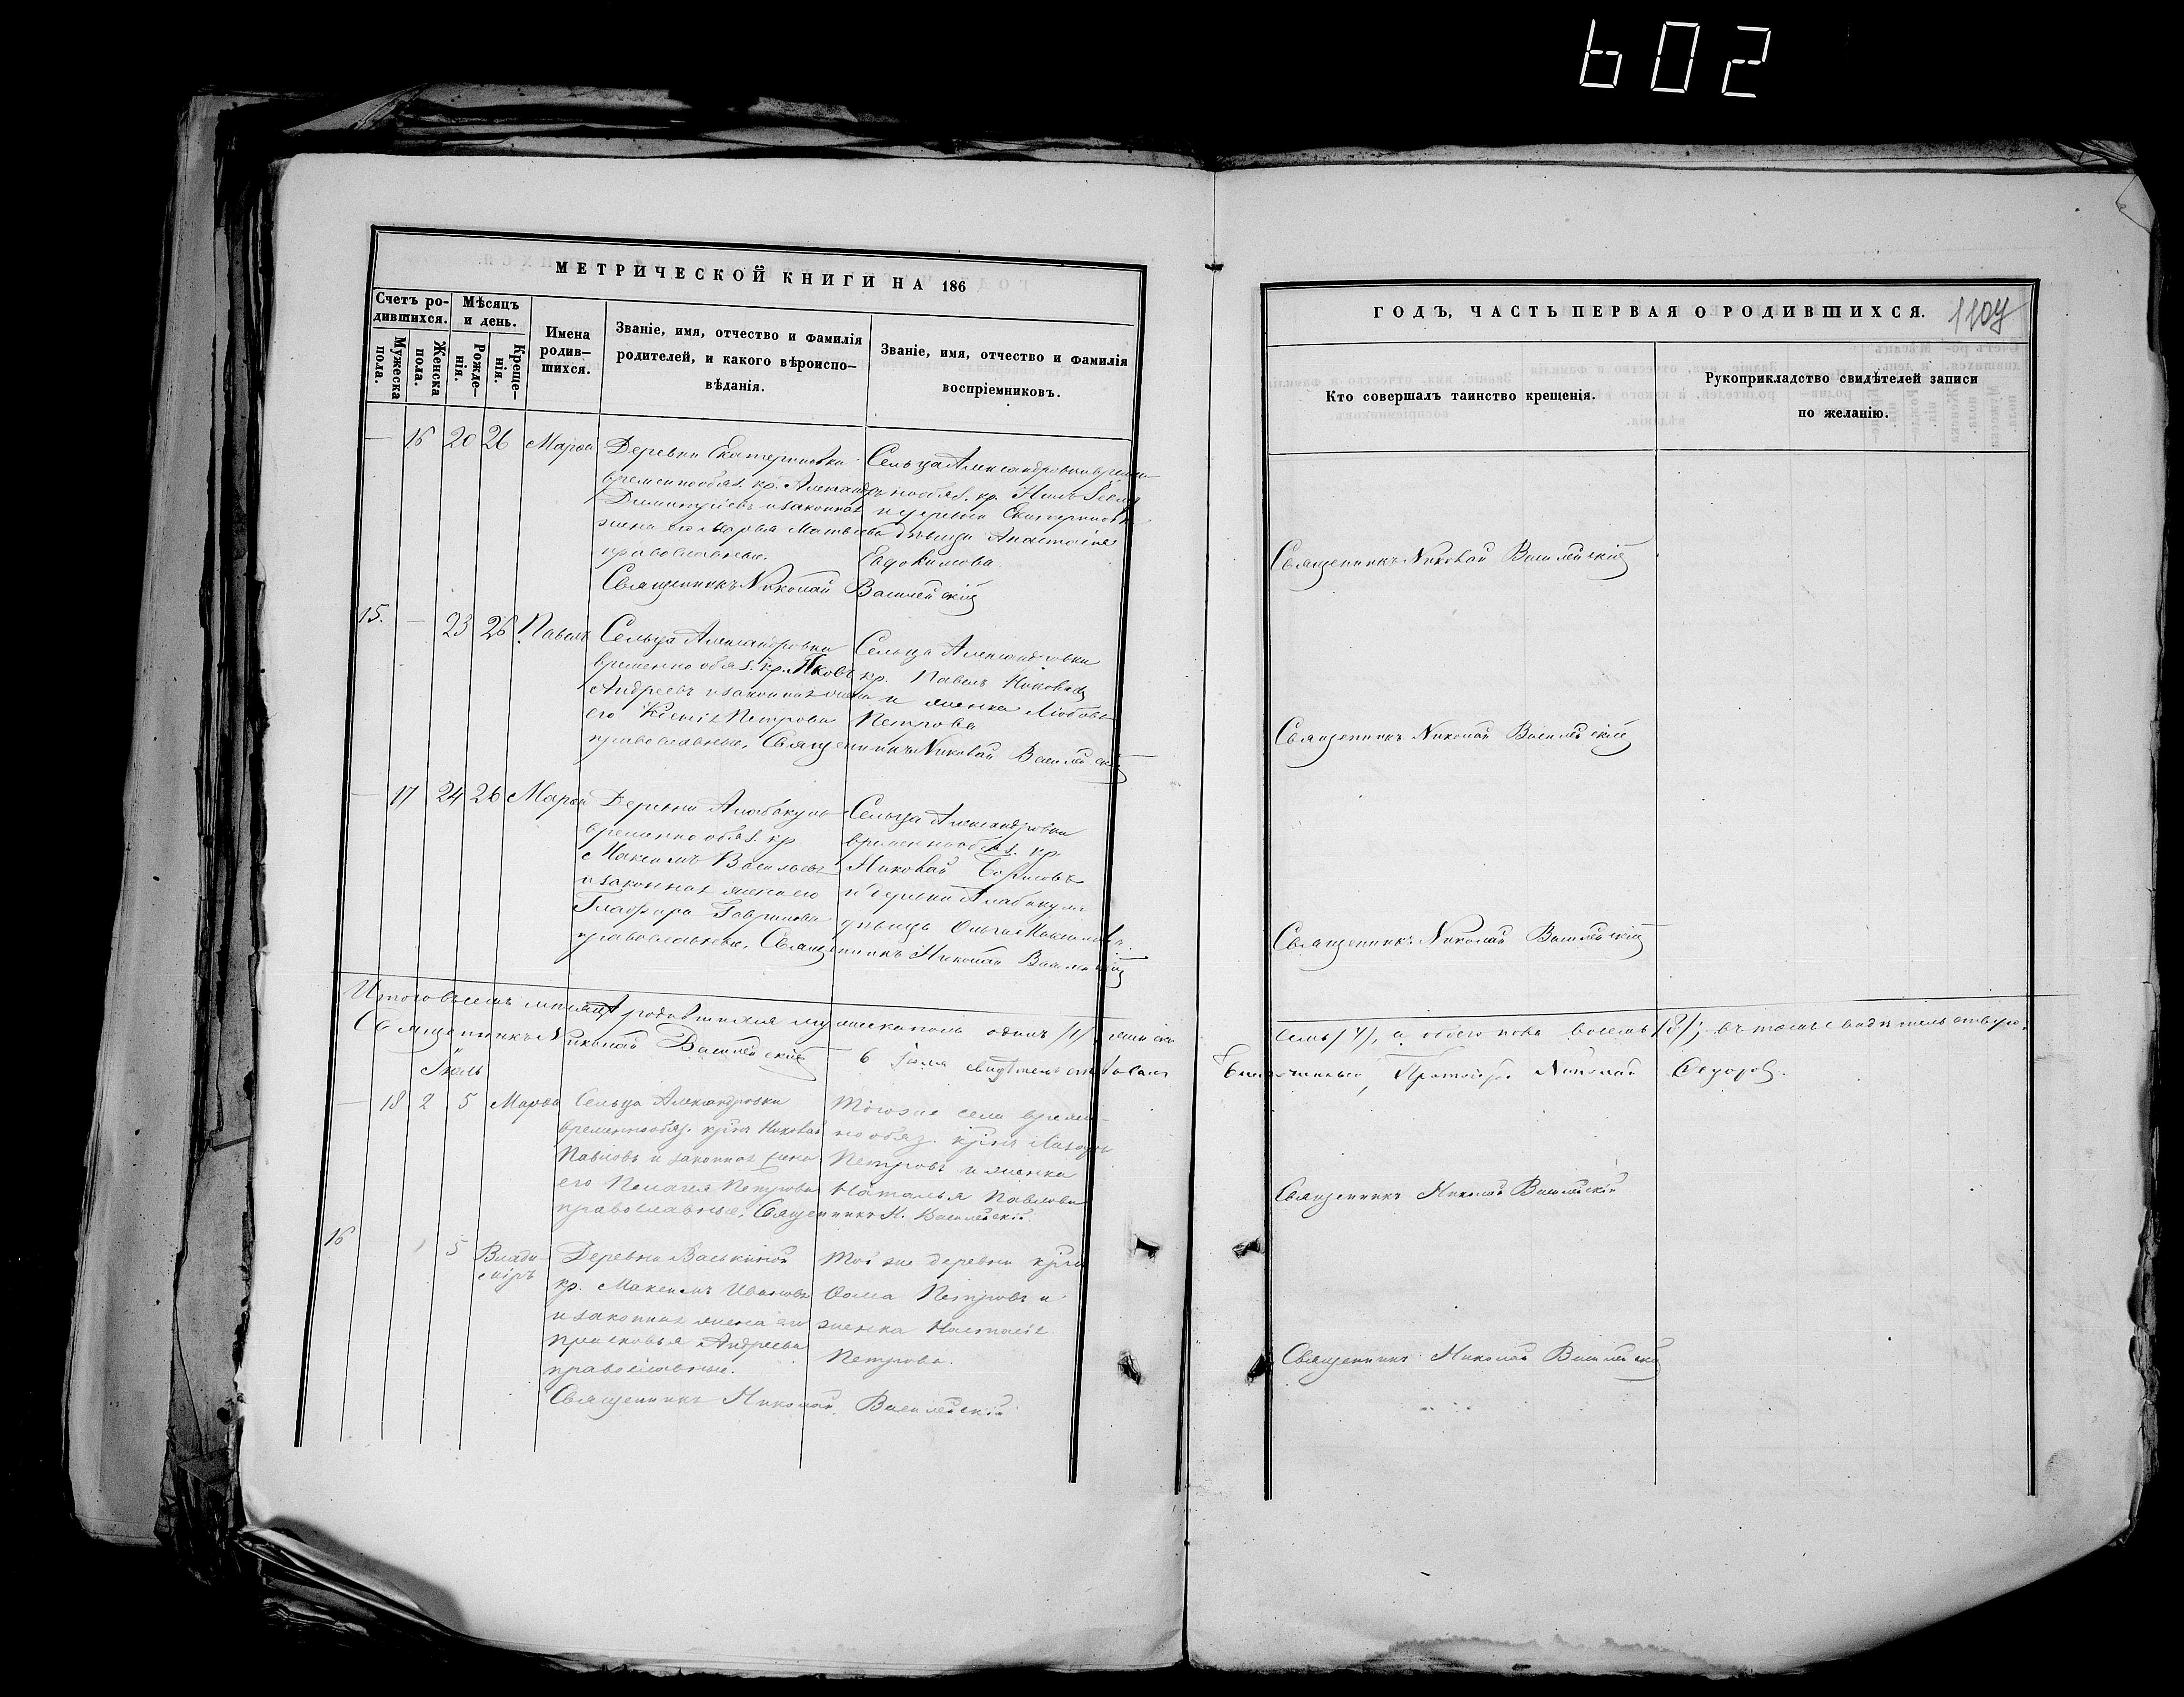 602
МЕТРИЧЕСКОЙ КНИГИ НА 186
Счетъ родившихся.
Мѣсяцъ и день.
Мужеска пола.
Женска пола.
Рожденія.
Крещенія.
Имена родившихся.
Званіе, имя, отчество и фамилія
родителей, и какого вѣроиспо-
вѣданія.
Званіе, имя, отчество и фамилія
воспріемниковъ.
— 16 20 26 Марѳа
Деревни Екатериновки
временнообяз. кр. Александръ
Димитріевъ и законная
жена его Марья Матвѣева
православные.
Сельца Александровки времен-
нообяз. кр.
и деревни Екатериновки
дѣвица Анастасія
Евдокимова.
Священникъ Николай Василевскій
15. — 23 26 Павелъ
Сельца Александровки
временнообяз. кр. Яковъ
Андреевъ и законная жена
его Ксенія Петрова
православные.
Сельца Александровки
кр. Павелъ Николаев
и женка Любовь
Петрова
Священникъ Николай Василевскій
— 17 24 26 Марѳа
Деревни Алабакуль
временнообяз. кр
Максимъ Васильевъ
и законная жена его
Глафира Гаврилова
православные.
Сельца Александровки
временнообяз. кр.
Николай
и деревни Алабакуль
дѣвица Ольга Максимова.
Священникъ Николай Василевскій
родившихся мужеска пола одинъ /1/, женска
Священникъ Николай Василевскій
6 Іюля свидѣтельствовалъ
Іюль
— 18 2 5 Марѳа
Сельца Александровки
временнообяз. крнъ Николай
Павловъ и законная жена
его Пелагея Петрова
православные.
Того же села времен-
нообяз. крнъ Лазарь
Петровъ и женка
Наталья Павлова
Священникъ Н. Василевскій
16 — 5 Влади-
міръ
Деревни Васькиной
кр. Максимъ Ивановъ
и законная жена его
Прасковья Андреева
православные.
Той же деревни крнъ
Ѳома Петровъ и
женка Настасія
Петрова.
Священникъ Николай Василевскій
ГОДЪ, ЧАСТЬ ПЕРВАЯ О РОДИВШИХСЯ.
Кто совершалъ таинство крещенія.
Рукоприкладство свидѣтелей записи
по желанію.
Священникъ Николай Василевскій
Священникъ Николай Василевскій
Священникъ Николай Василевскій
семь /7/, а обоего пола восемь /8/; въ томъ свидѣтельствую,
Благочинный, Протоіерей Николай Ѳедоровъ.
Священникъ Николай Василевскій
Священникъ Николай Василевскій